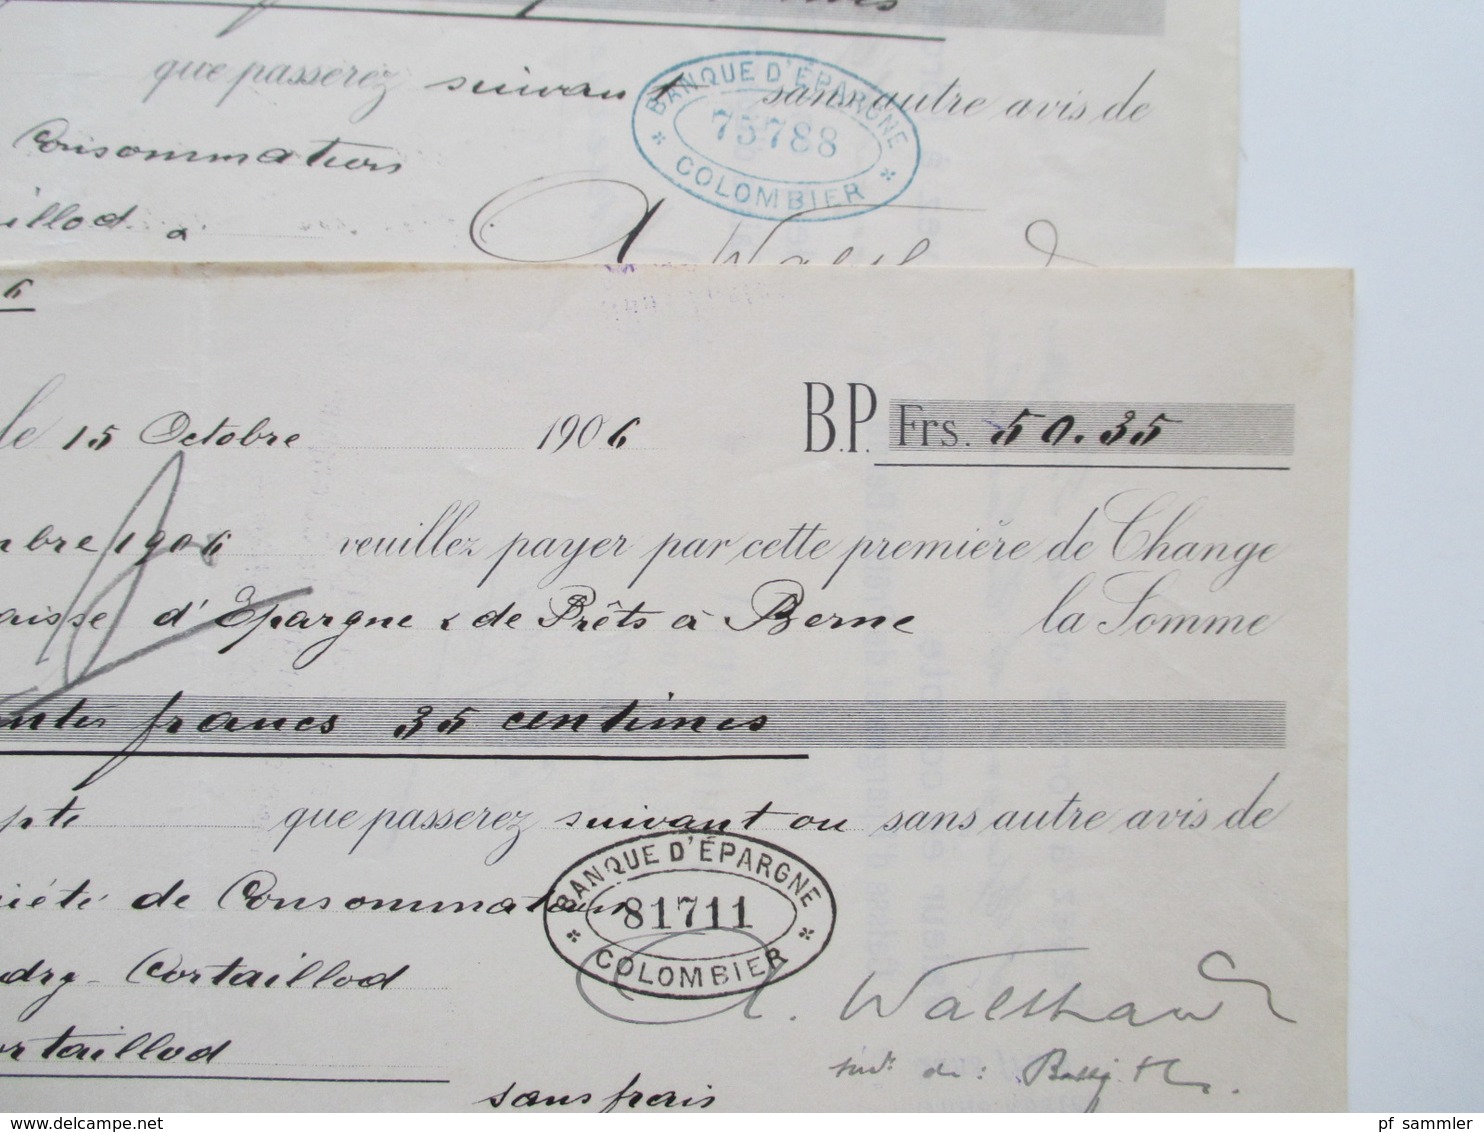 que passerez suivant sans autre avis de
BANQUE D'ÉPARGNE
75788
COLOMBIER
Consommation
aillod à
6
le 15 Octobre 1906 B.P. Frs. 50.35
mbre 1906 veuillez payer par cette première de Change
aisse d'Epargne & de Prêts à Berne la Somme
francs 35 centimes
mpte que passerez suivant ou sans autre avis de
BANQUE D'ÉPARGNE
81711
COLOMBIER
iété de Consommation
udry-Cortaillod
ortaillod
sans frais
pf_sammler